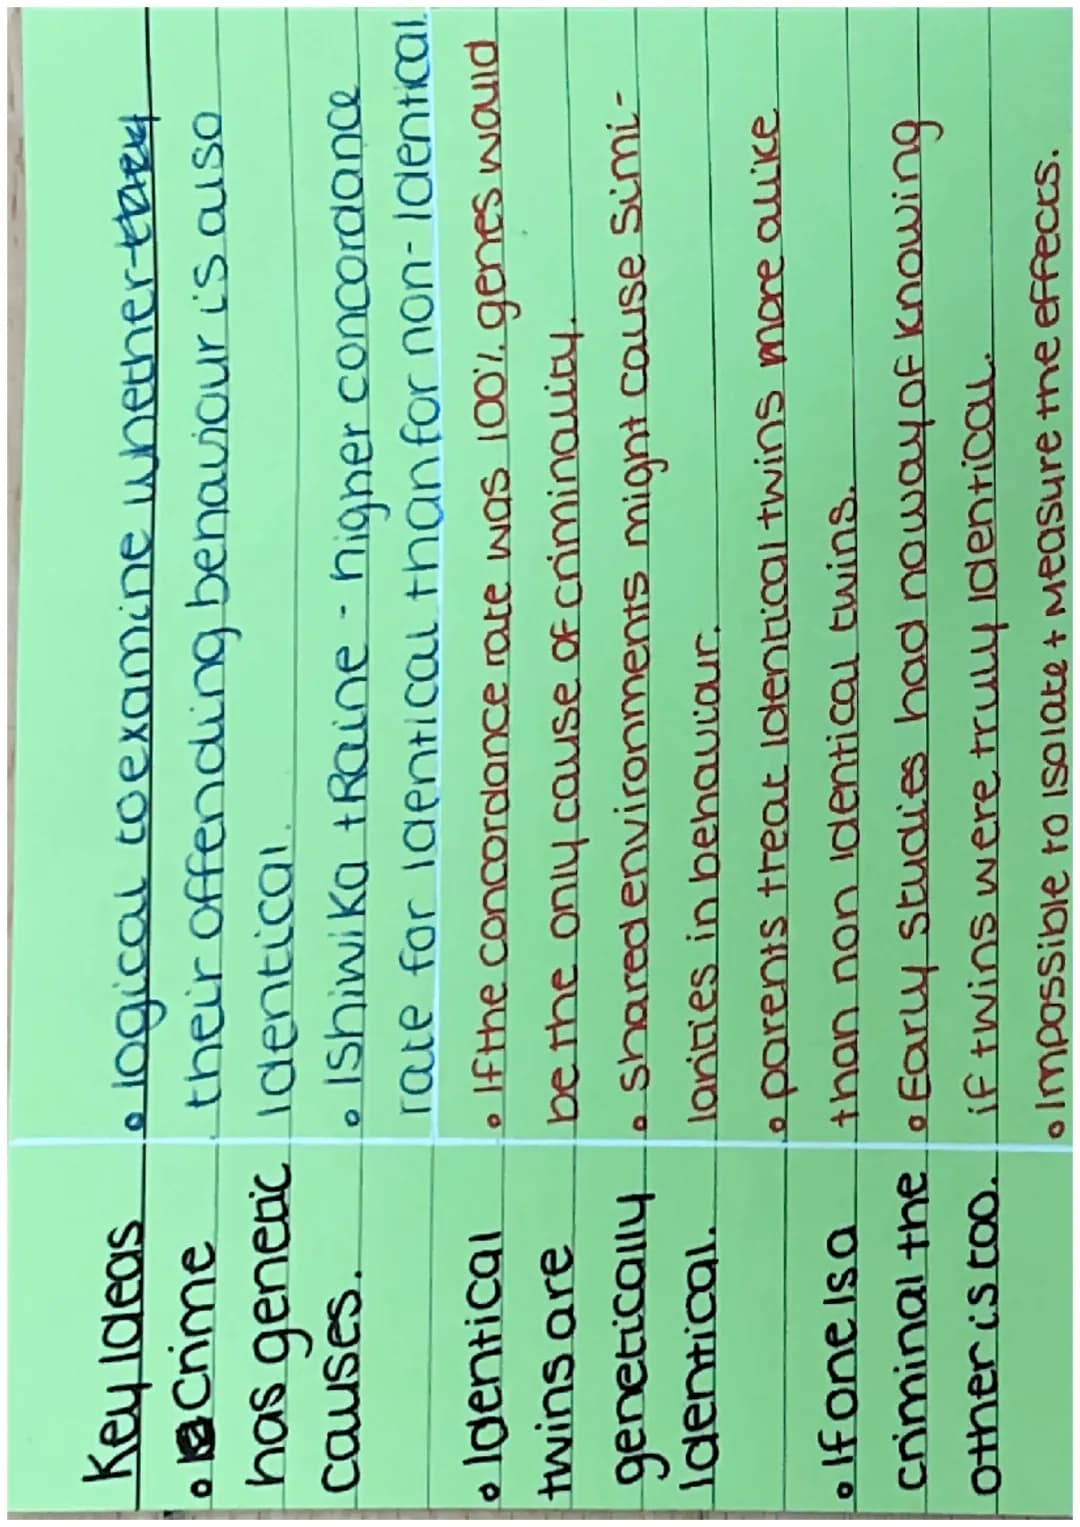 Key Ideas
• Crime
has genetic
causes.
• Identical
twins are
genetically
Identical.
• If one is a
criminal the
other is too.
• logical to examine whether they
their offending behaviour is also
Identical.
• Ishiwika + Raine - higher concordance
rate for identical than for non-Identical.
• If the concordance rate was 100% genes would
be the only cause of criminality.
• shared environments might cause simi-
larities in behaviour.
• parents treat identical twins more alike
than non identical twins.
• Early studies had no way of knowing
if twins were truly identical.
• Impossible to isolate + measure the effects.